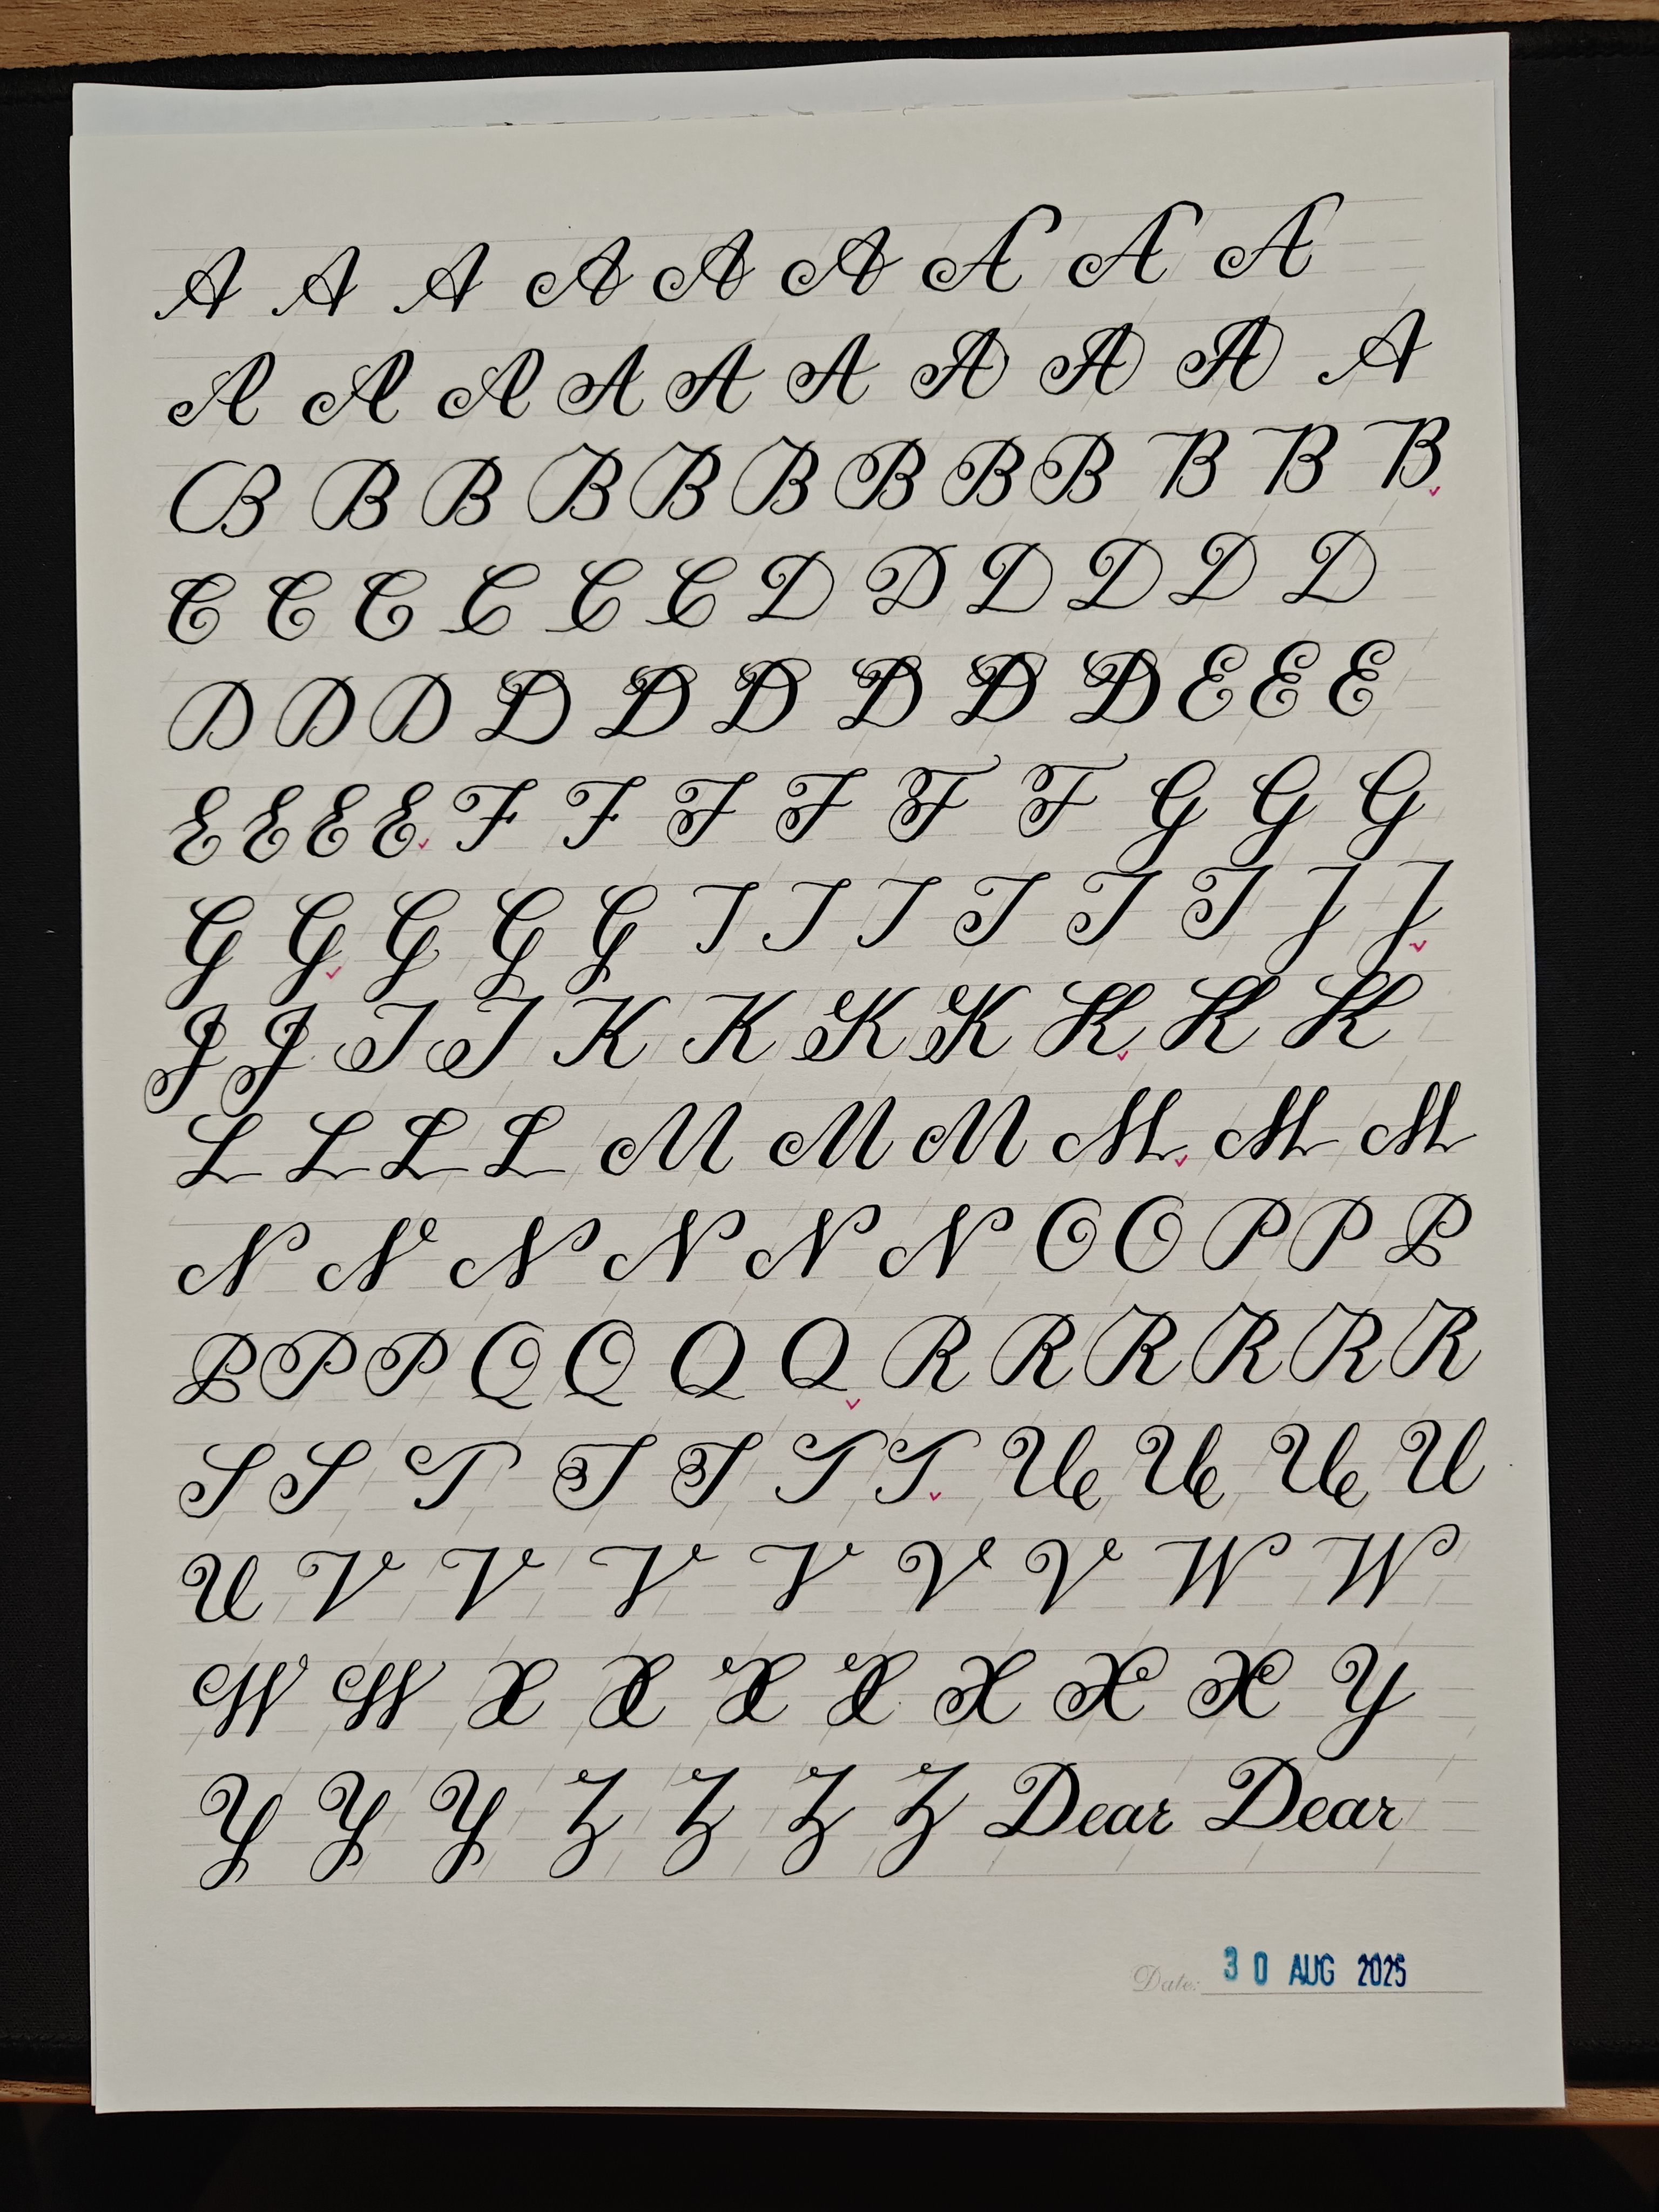 A A A A A A A A A
A A A A A A A A A A
B B B B B B B B B B B B
C C C C C C D D D D D D
D D D D D D D D D E E E
E E E E F F F F F F G G G
G G G G G I I I I I I J J
J J I I K K K K K K K
L L L L M M M M M M
N N N N N N O O P P P
P P P Q Q Q Q R R R R R R
S S T T T T T U U U U
U V V V V V V W W
W W X X X X X X X Y
Y Y Y Z Z Z Z Dear Dear
Date: 30 AUG 2025